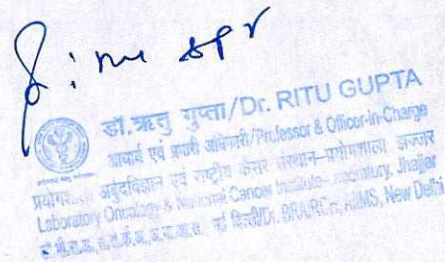 डॉ. ऋतु गुप्ता/Dr. RITU GUPTA
आचार्य एवं प्रभारी अधिकारी/Professor & Officer-in-Charge
प्रयोगशाला अर्बुदविज्ञान एवं राष्ट्रीय कैंसर संस्थान-प्रयोगशाला झज्जर
Laboratory Oncology & National Cancer Institute- Laboratory, Jhajjar
नई दिल्ली/Dr. AIIMS, New Delhi